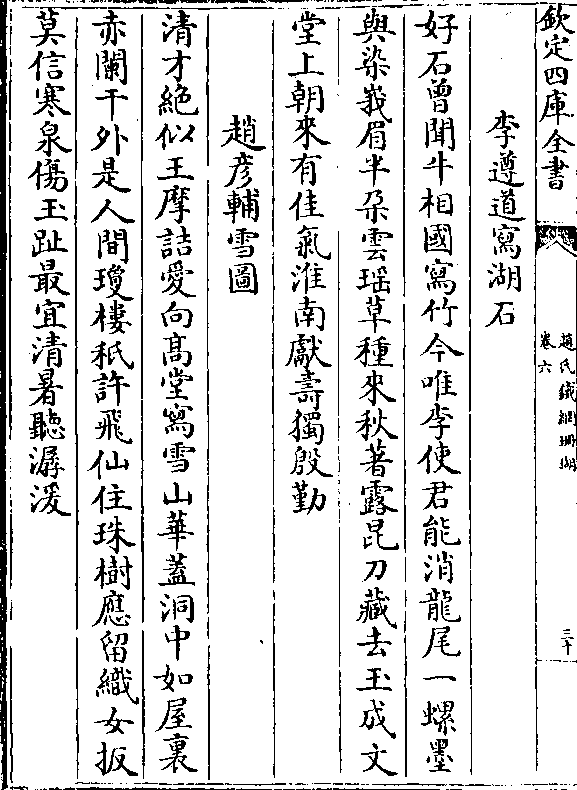 欽定四庫全書
趙氏鐵網珊瑚
卷六
三十
李遵道寫湖石
好石曾聞牛相國寫竹今唯李使君能消龍尾一螺墨
與染峩眉半朶雲瑶草種來秋著露昆刀藏去玉成文
堂上朝來有佳氣淮南獻壽獨殷勤
趙彦輔雪圖
清才絶似王摩詰愛向髙堂寫雪山華蓋洞中如屋裏
赤闌干外是人間瓊樓秖許飛仙住珠樹應留織女扳
莫信寒泉傷玉趾最宜清暑聽潺湲